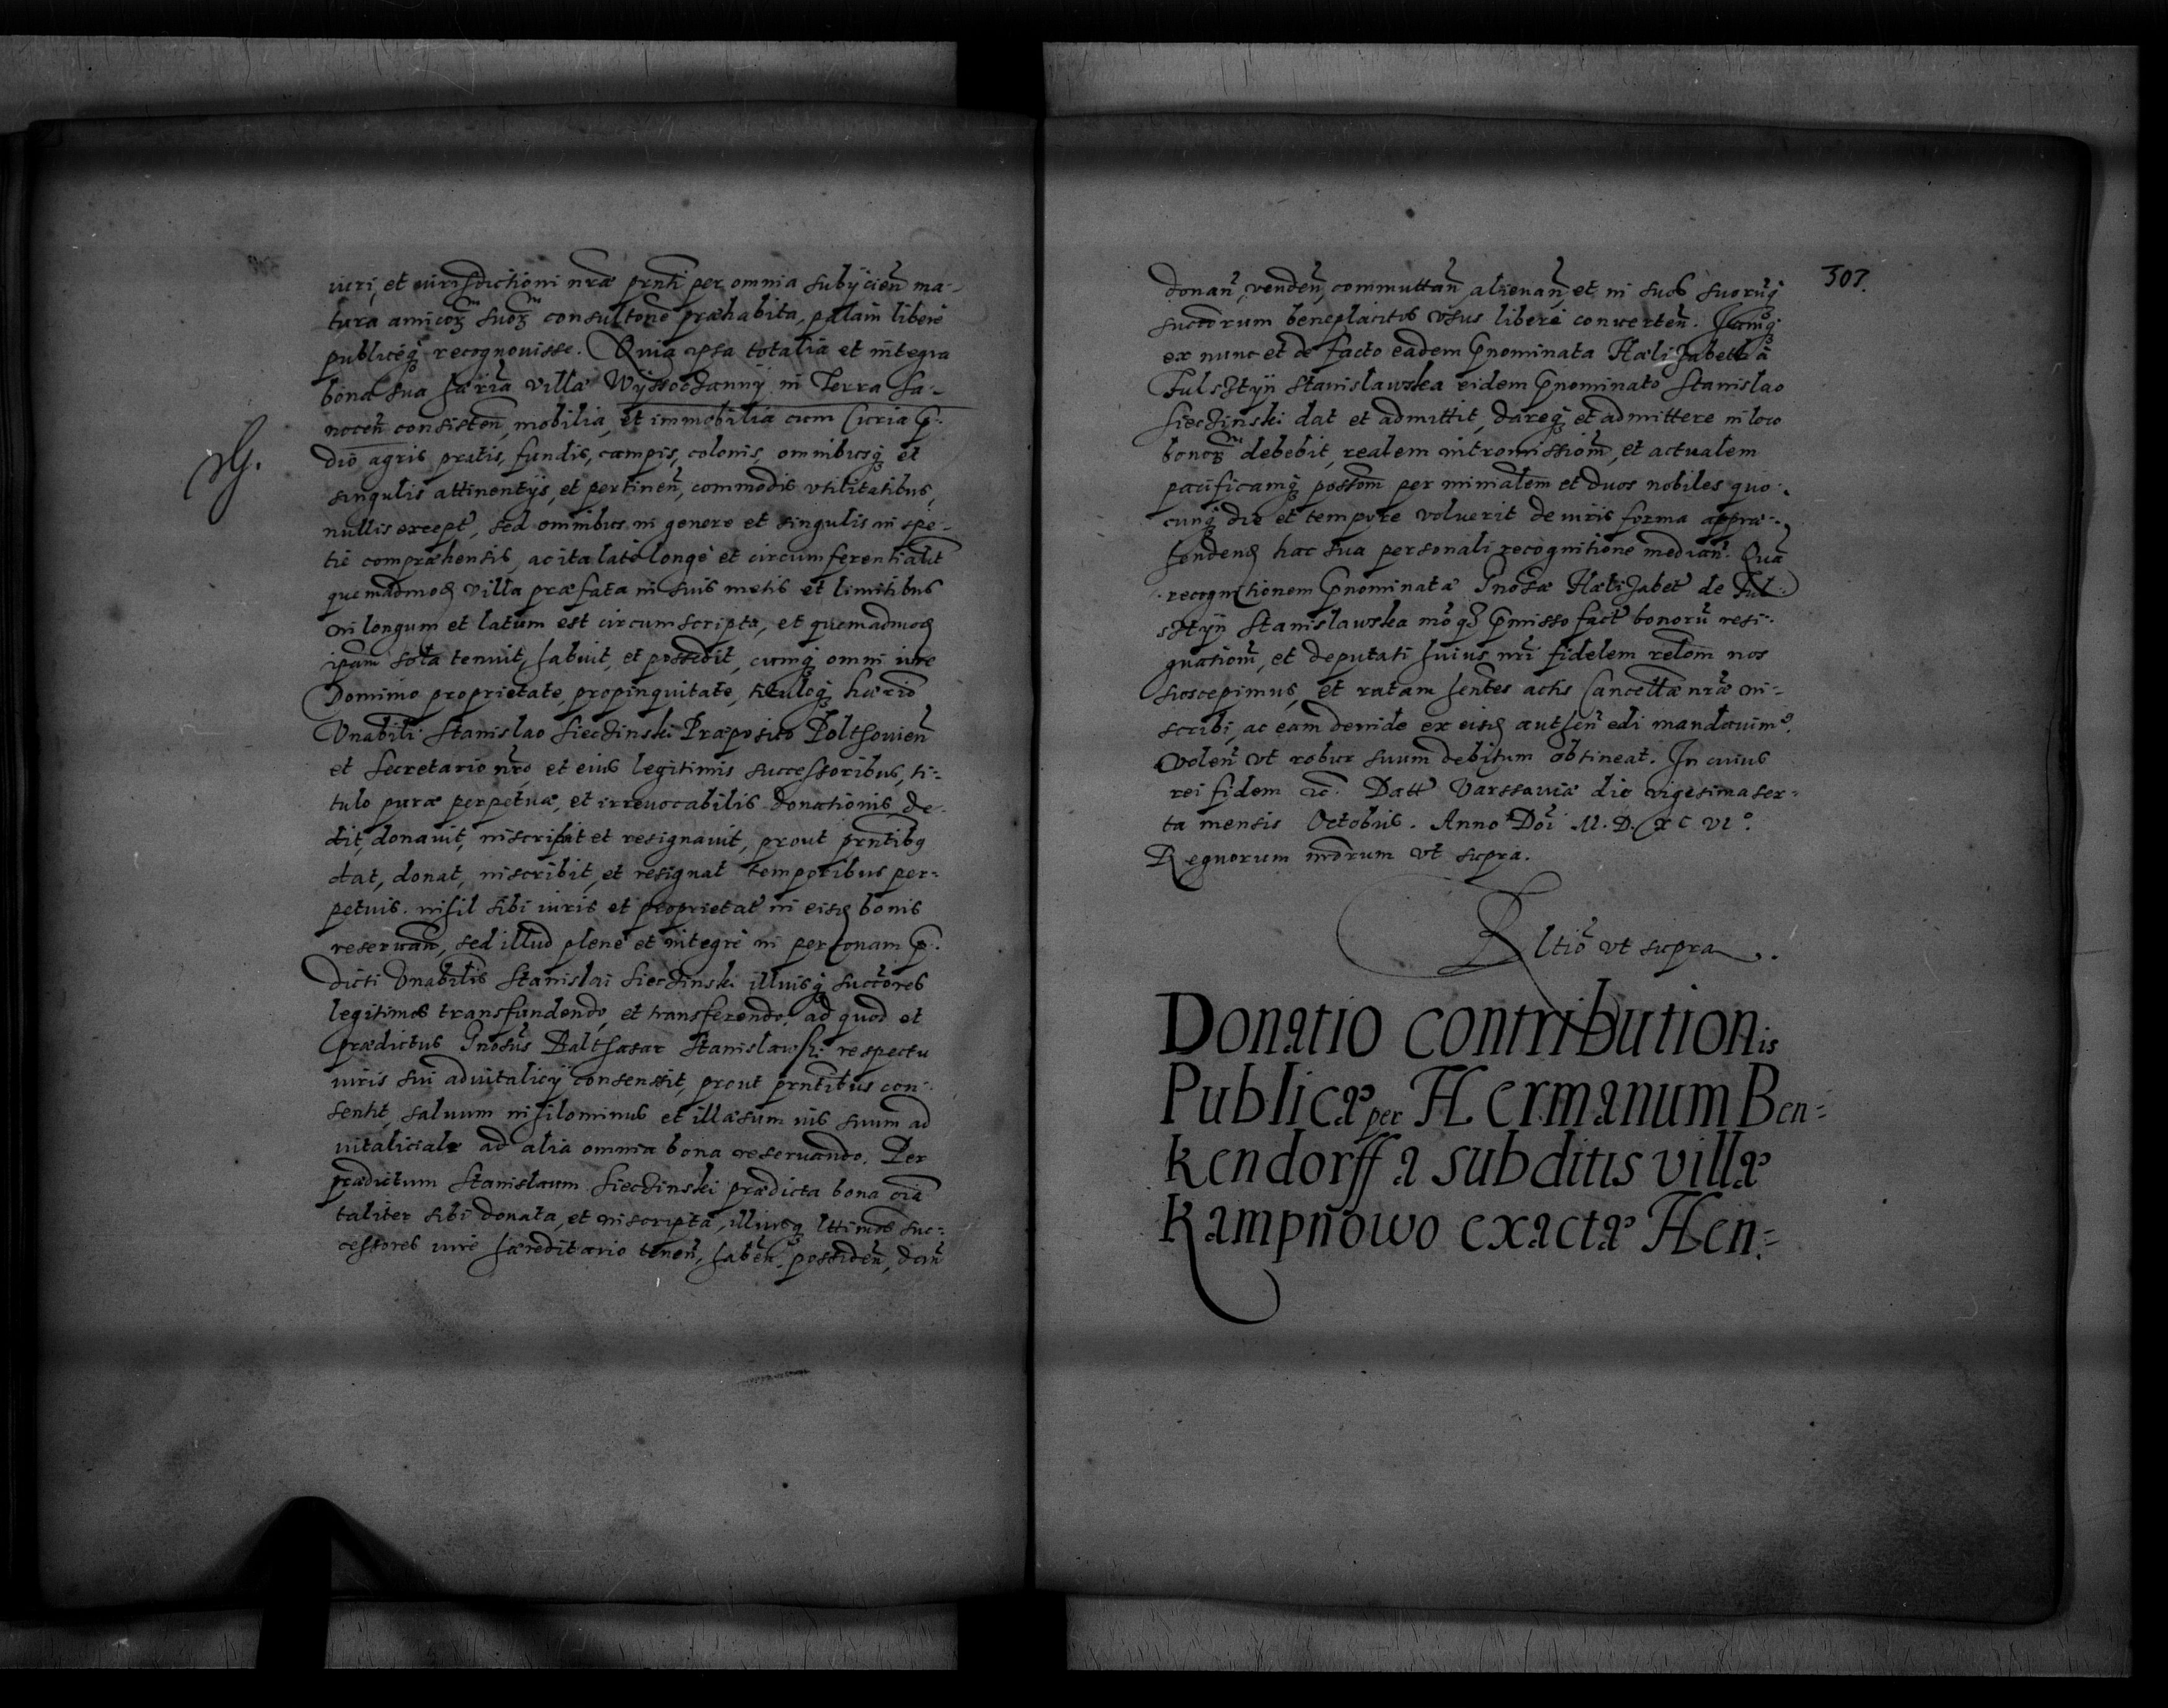 iuri, et iurisdictioni nræ prnti per omnia subÿcien̄ ma-
tura amicoꝝ suoꝝ consultone præhabita, palam libere
publiceqꝫ recognouisse. Quia ipsa totalia et integra
bona sua hæria villæ Wÿssoczannÿ in Terra Sa-
nocen̄ consisten̄, mobilia, et immobilia cum Curia p̄-
dio agris pratis, fundis, campis, colonis, omnibusqꝫ et
singulis attinentÿs, et pertinen̄, commodis vtilitatibus,
nullis except̄, sed omnibus in genere et singulis in spe-
tie compræhensis, ac ita late longe et circumferentialit̄
quemadmoꝺ villa præfata in suis metis et limitibus
in longum et latum est circumscripta, et quemadmoꝺ
ipsam sola tenuit, habuit, et possedit, cumqꝫ omni iure
Dominio proprietate, propinquitate, tituloqꝫ hærio
Vnabili Stanislao Sieczinski Præposito Polthouien̄
et Secretario nro, et eius legitimis successoribus, ti-
tulo puræ perpetuæ, et irreuocabilis donationis, de-
dit, donauit, inscripsit et resignauit, prout prntibꝫ
dat, donat, inscribit, et resignat temporibus per-
petuis. nihil sibi iuris et proprietat̄ in eisꝺ bonis
reseruan̄, sed illud plene et integre in personam p̄-
dicti Vnabilis Stanislai Sieczinski illiusqꝫ succ̄ores
legitimos transfundendo, et transferendo. ad quod et
prædictus Gnosus Balthasar Stanislawski respectu
iuris sui aduitalicÿ consensit, prout prntibus con-
sentit, saluum nihilominus et illæsum ius suum ad
uitaliciale ad alia omnia bona reseruando. Per
prædictum Stanislaum Sieczinski prædicta bona oia
taliter sibi donata, et inscripta, illiusqꝫ lttimos suc-
cessores iure hæreditario tenen̄, haben̄, possiden̄, dan̄
307.
donan̄, venden̄, commuttan̄ alienan̄, et in suos suorūqꝫ
succ̄orum beneplacitos vsus libere conuerten̄. Iamqꝫ
ex nunc et de facto eadem p̄nominata Hælizabeth a
Fulsztÿn Stanislawska eidem p̄nominato Stanislao
Sieczinski dat et admittit, dareqꝫ et admittere in loco
bonoꝝ debebit, realem intromissiom̄, et actualem
pacificamqꝫ possom̄ per minialem et duos nobiles quo-
cunqꝫ die et tempore voluerit de iuris forma appræ-
hendenꝺ hac sua personali recognitione median̄. Qua
recognitionem p̄nominatæ Gnosæ Hælizabet̄ de Ful-
sztÿn Stanislawska mō qꝫ p̄misso fact̄ bonorū resi-
gnatiom̄, et deputati huius nri fidelem relom̄ nos
suscepimus, et ratam hentes actis Cancellæ nræ in-
scribi, ac eam deinde ex eisꝺ authen̄ edi mandauimꝰ.
Volen̄ vt robur suum debitum obtineat. In cuius
rei fidem ꝛc. Datt̄ Varssauiæ die vigesima sex-
ta mensis Octobris. Anno Doi M. D. XC VIº.
Regnorum nrorum vt supra.
Rltiō vt supra.
Donatio contributionis
Publicæ per Hermanum Ben=
kendorff a subditis villæ
Kampñowo exactæ Hen=